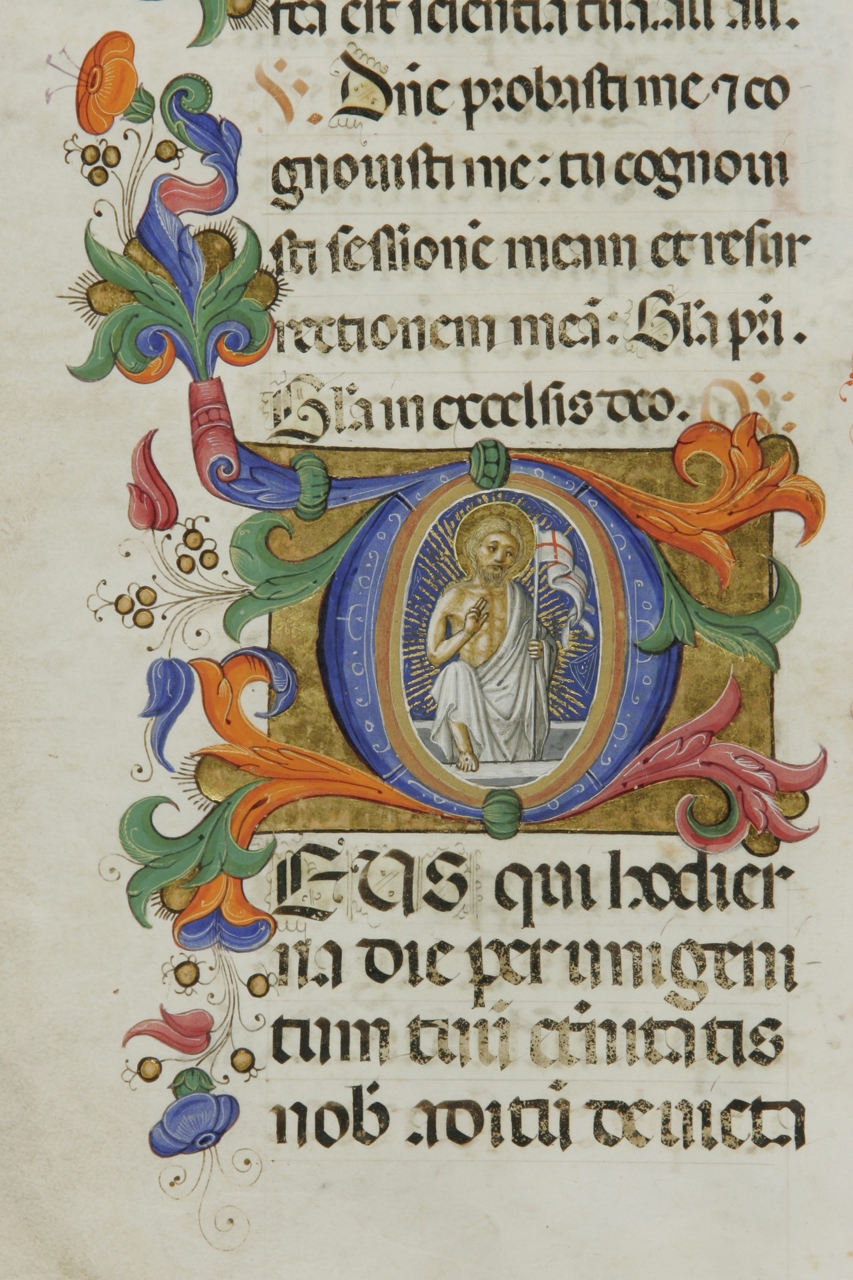 cta est scientia tua. all̄a all̄a.
V. Dn̄e probasti me ⁊ co
gnouisti me: tu cognoui
sti sessionē meam et resur
rectionem meā: Gl̄a pr̄i.
Gl̄a in excelsis deo. Or̄:
D
EUS qui hodier
na die per unigeni
tum tuū et̄nitatis
nob̄ aditū deuicta